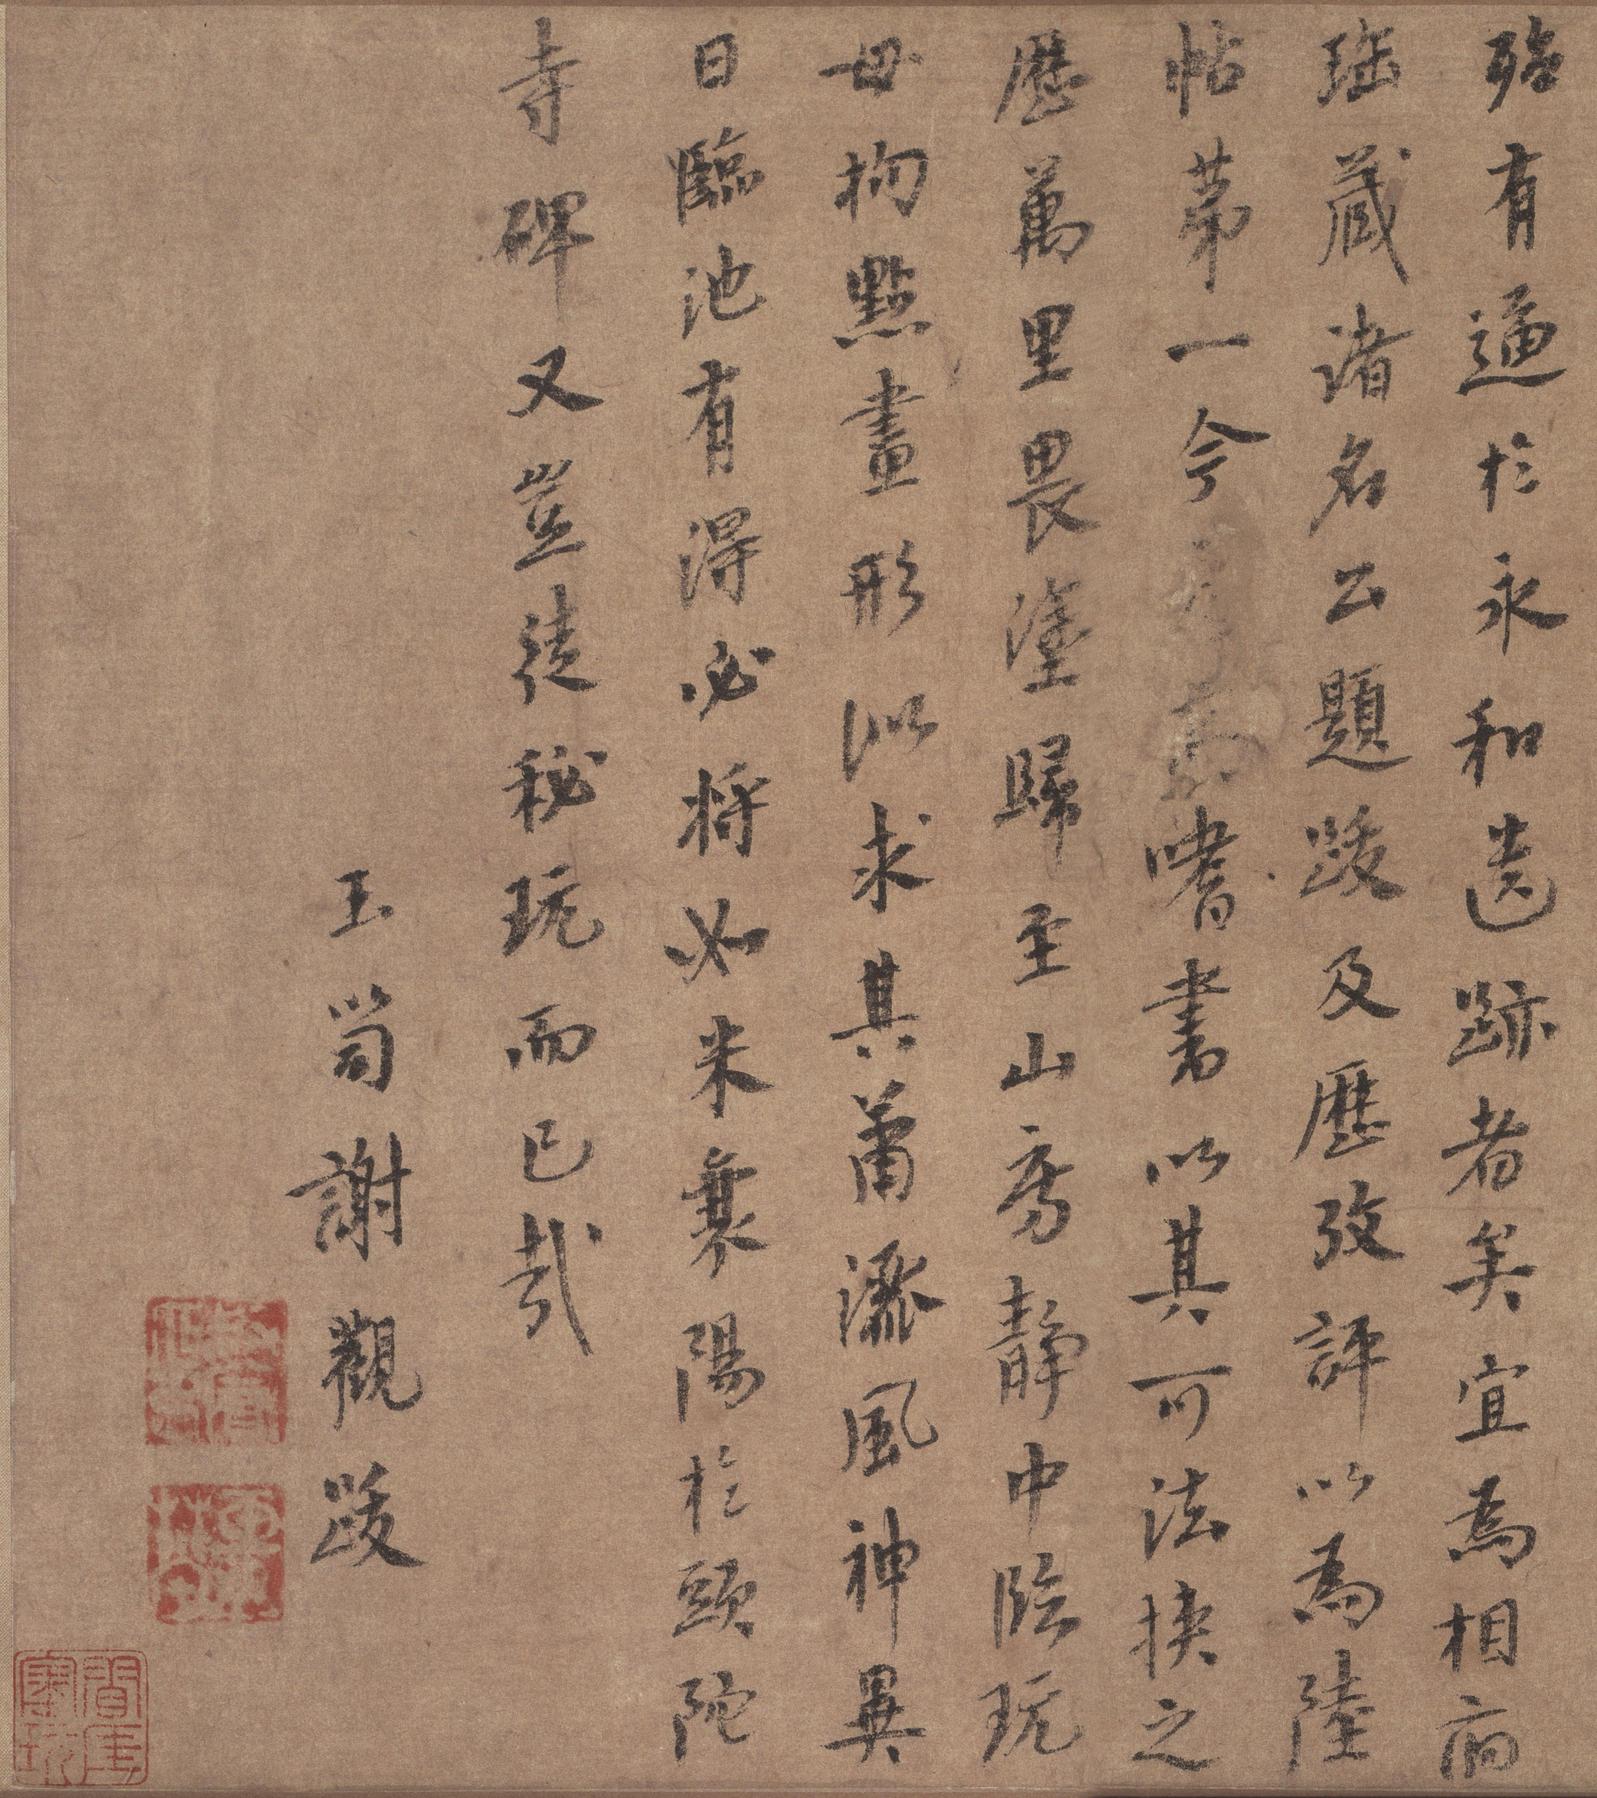 殆有逼於永和遺跡者矣宜爲相府
珎藏諸名公題跋及歷攷評以爲陸
帖第一今嗜書以其可法挾之
歷萬里畏塗歸至山房静中臨玩
毋拘點畫形似以求其蕭灑風神異
日臨池有得必將如米襄陽於頭陀
寺碑又豈徒秘玩而已哉
玉笥謝觀跋